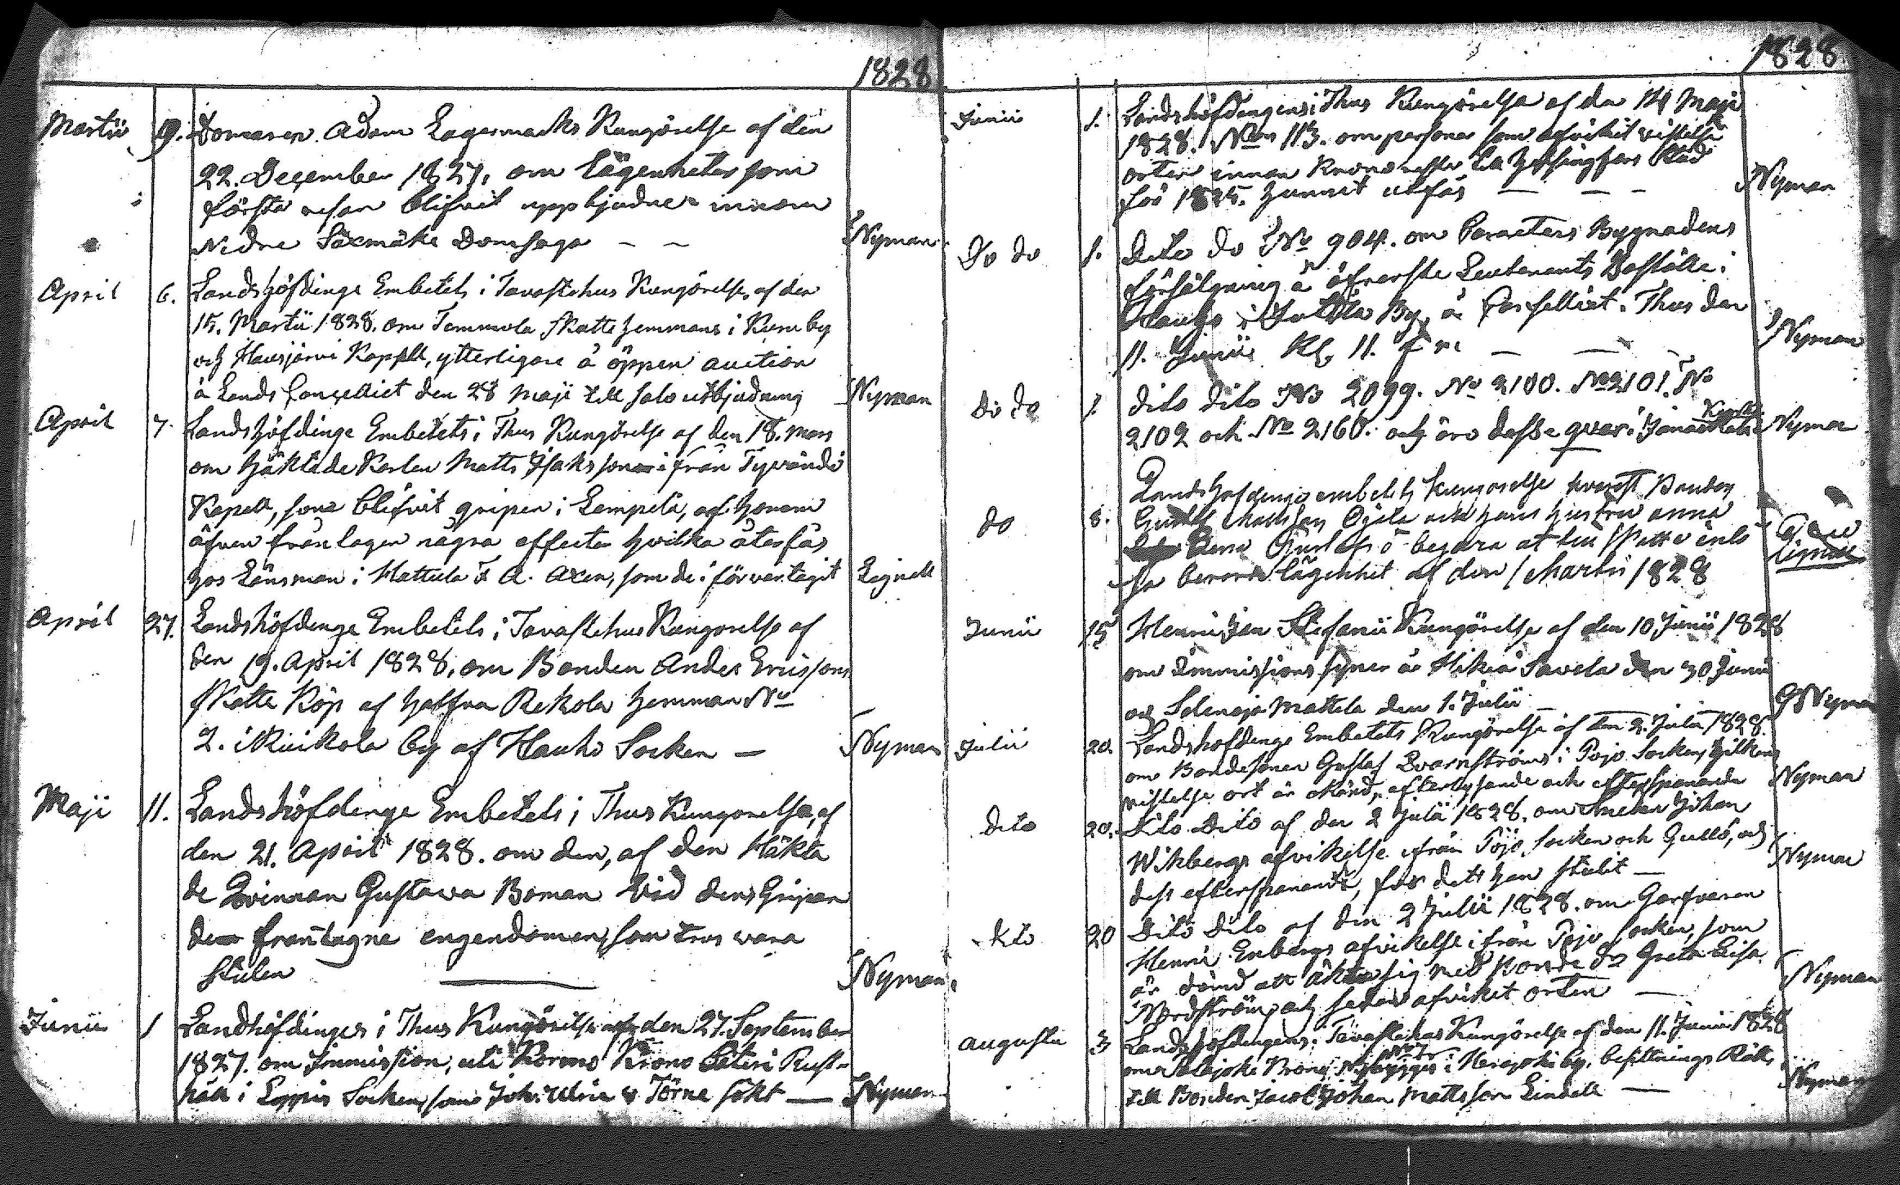 1828
Martii 9. Domaren Adam Lagermarks Kungörelse af den
22. December 1827, om Lägenheter som
första resan blifvit uppbjudne innom
Nedre Säxmäki Domsaga — — Nyman
April 6. Landshöfdinge Embetets i Tavastehus Kungörelse af den
15. Martii 1828. om Tommola skatte hemmans i Kum by
och Hausjärvi Kapell, ytterligare å öppen auction
å Lands Cancelliet den 28 Maji till salu utbjudning Nyman
April 7. Landshöfdinge Embetets i Thus Kungörelse af den 18. Mars
om häktade Karlen Matts Isaksson ifrån Tyrvändö
Kapell, som blifvit gripen i Lempelä, af honom
äfven fråntagen några effecter hvilka återfås
hos Länsman i Hattula F. A. Axen, som de i förvar tagit Lignell
April 27. Landshöfdinge Embetets i Tavastehus Kungorelse af
den 19. April 1828, om Bonden Anders Ericssons
Skatte Köp af hafna Rekola hemman No
2. i Kuikola by af Hauho Socken — Nyman
Maji 11. Landshöfdinge Embetets i Thus Kungorelse, af
den 21. April 1828. om den, af den Häkta
de Qvinnan Gustava Boman vid dens Gripan
de frantagne engendomen, som tros vara
stulen — Nyman
Junii 1 Landhöfdinges i Thus Kungörelse af den 27. September
1827. om Immission, uti Krono Säteri Rust-
håll i Loppis Socken, som Joh: Ulric v Törne sökt — Nyman
1828
Junii 1. Landshöfdingens i Thus Kungörelse af den 14 Maji
1828. No 113. om persone som afvikit vistelse
orten innan Kronoresta till Helsingfors Stad
för 1825. hunnit utfås — — — Nyman
Do do 1. Dito do No 904. om Caracters Bygnadens
försäljning å öfverste Leutenants Boställe i
Hauho i Lutla By, å Cancelliet i Thus den
11. Junii Kl. 11. f m — — — Nyman
Do do 1. Dito dito No 2099. No 2100. No 2101. No
2102 och No 2160. och äro desse qvar i Janackala Kyrka Nyman
do 8. Landshöfdinge embetets Kungörelse hvarest Bonden
Gustaf Mattsson Ojala och hans hustru Anna
Gustafs d begära at till skatte inlö
sa berorde lägenhet af den 1 Martii 1828 Lignell
Junii 15 Henric Jan Stefanii Kungörelse af den 10 Junii 1828
om immissions syner å Hikiä Savela den 30 Junii
och Selenoja Mattila den 1. Julii — G Nyman
Julii 20. Landshofdinge Embetets Kungörelse af den 2. Julii 1828.
om Bondesonen Gustaf Qvarnströms i Pojo Socken, hilkens
vistelse ort är okänd, efterlysande och efterspanande Nyman
Dito 20. Dito Dito af den 2 Julii 1828. om Smeden Johan
Wikbergs afvikelse ifrån Pojo Socken och Gullö, och
dess efterspanande, för dett han stulit — Nyman
Dito 20 Dito Dito af den 2 Julii 1828. om Garfvaren
Henric Enbergs afvikelse ifrån Pojo socken, som
är dömd att äkta sig med Greta Lisa
Nordström och sedan afviket orten — Nyman
Augusti 3 Landshöfdingens i Tavastehus Kungörelse af den 11. Junii 1828
om Krono Nybygges No 7 i by, besittnings Rätt,
till Bonden Jacob Johan Mattsson Lindell — Nyman